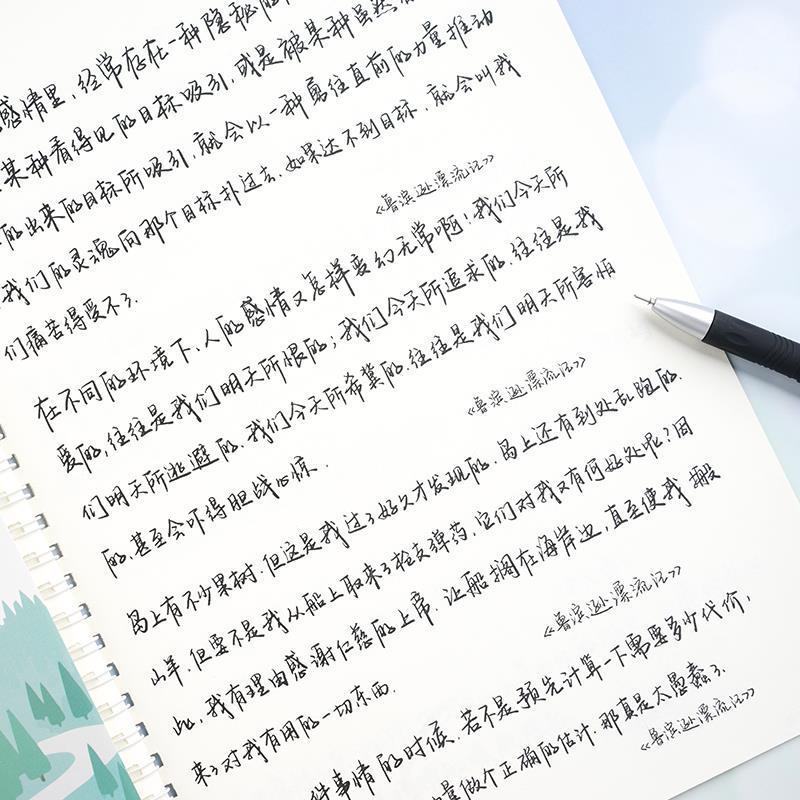 感情里,经常存在一种隐秘的
某种看得见的目标吸引,或是被某种虽然
的出来的目标所吸引,就会以一种勇往直前的力量推动
我们的灵魂向那个目标扑过去,如果达不到目标,就会叫我
们痛苦得受不了.
《鲁滨逊漂流记》
在不同的环境下,人的感情又怎样变幻无常啊!我们今天所
爱的,往往是我们明天所恨的;我们今天所追求的,往往是我
们明天所逃避的,我们今天所希冀的,往往是我们明天所害怕
的,甚至会吓得胆战心惊.
《鲁滨逊漂流记》
岛上有不少果树,但这是我过了好久才发现的,岛上还有到处乱跑的
山羊,但要不是我从船上取来了枪支弹药,它们对我又有何好处呢?因
此,我有理由感谢仁慈的上帝.让船搁在海岸边,直至使我搬
来了对我有用的一切东西.
《鲁滨逊漂流记》
件事情的时候,若不是预先计算一下需要多少代价,
量做个正确的估计,那真是太愚蠢了.
《鲁滨逊漂流记》